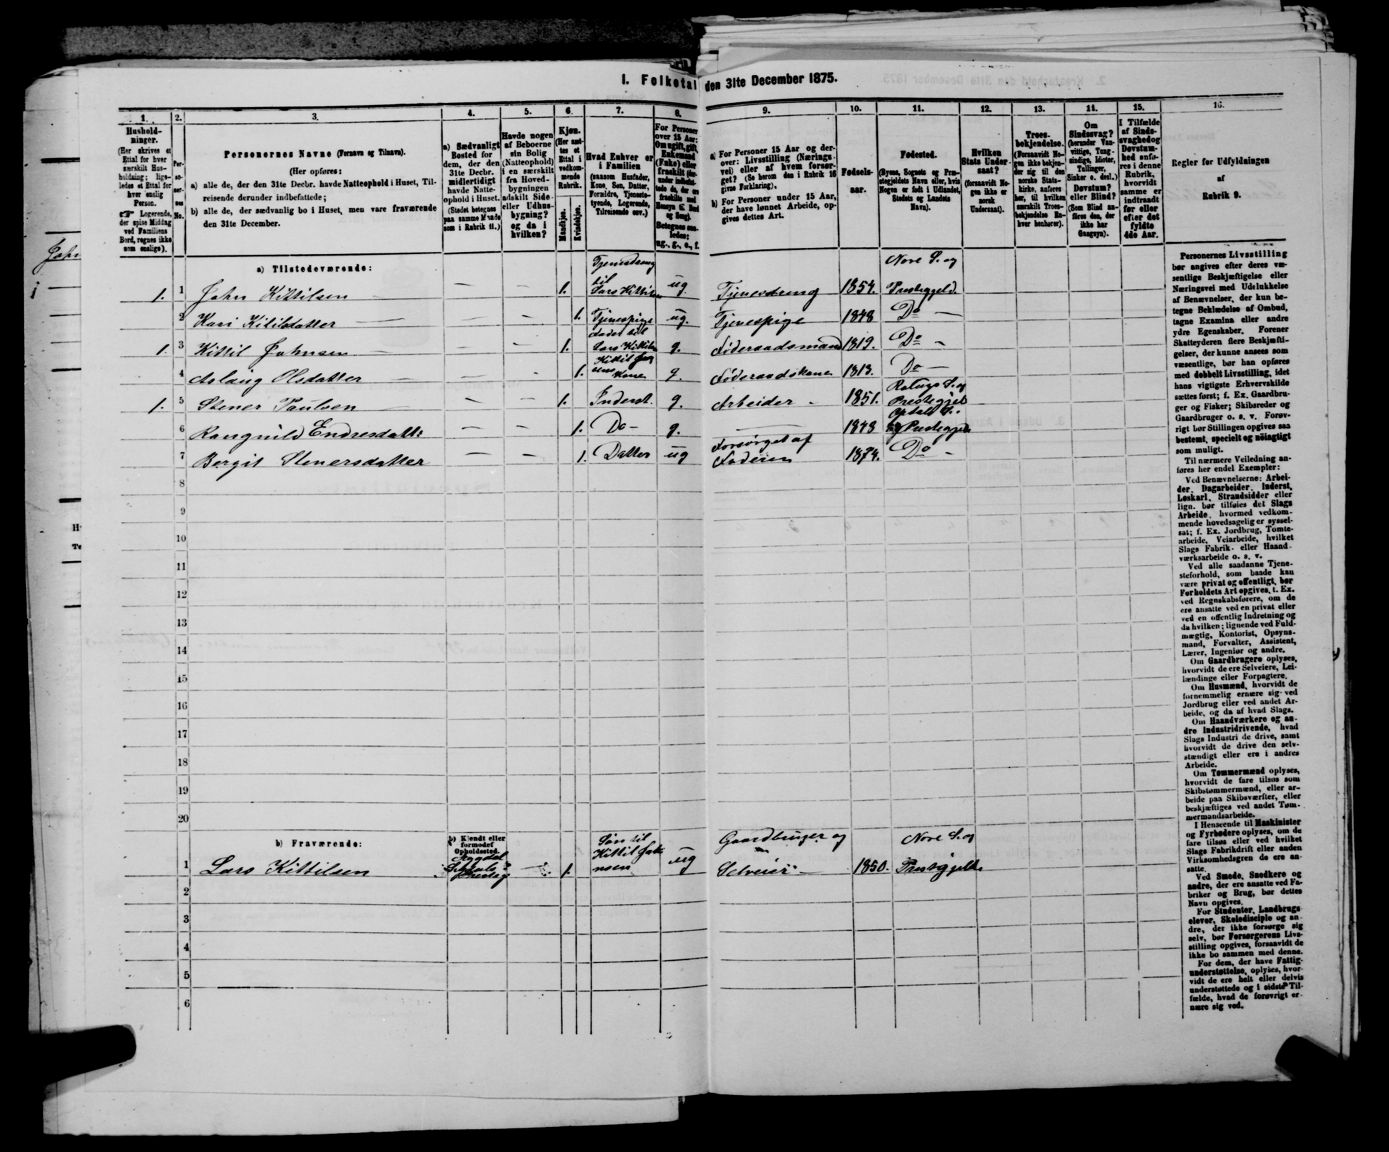 I. Folketal den 31te December 1875.
1. 2. 3. 4. 5. 6. 7. 8. 9. 10. 11. 12. 13. 14. 15. 16.
Hushold-
ninger.
(Her skrives et
Ettal for hver
særskilt Hus-
holdning; lige-
ledes et Ettal for
hver enslig
Person.
☞ Logerende,
der spise Middag
ved Familiens
Bord, regnes ikke
som enslige).
Personernes Navne (Fornavn og Tilnavn).
(Her opføres:
a) alle de, der den 31te Decbr. havde Natteophold i Huset, Til-
reisende derunder indbefattede;
b) alle de, der sædvanlig bo i Huset, men vare fraværende
den 31te December.
a) Sædvanligt
Bosted for
dem, der den
31te Decbr.
midlertidigt
havde Natte-
ophold i Huset.
(Stedet betegnes
paa samme Maade
som i Rubrik 11.)
Havde nogen
af Beboerne
sin Bolig
(Natteophold)
i en særskilt
fra Hoved-
bygningen
adskilt Side-
eller Udhus-
bygning?
og da i
hvilken?
Kjøn.
(Her sæt-
tes et
Ettal i
vedkom-
mende
Rubrik.
Mandkjøn.
Kvindekjøn.
Hvad Enhver er
i Familien
(saasom Husfader,
Kone, Søn, Datter,
Forældre, Tjeneste-
tyende, Logerende,
Tilreisende osv.)
For Personer
over 15 Aar:
Om ugift, gift,
Enkemand
(Enke) eller
fraskilt
ug., g., e., f.
a) For Personer 15 Aar og der-
over: Livsstilling (Nærings-
vei) eller af hvem forsør-
get? (Se herom den i Rubrik 16
givne Forklaring).
b) For Personer under 15 Aar,
der have lønnet Arbeide, op-
gives dettes Art.
Fødsels-
aar.
Fødested.
(Byens, Sognets og Præ-
stegjeldets Navn eller, hvis
Nogen er født i Udlandet,
Stedets og Landets
Navn).
Hvilken
Stats Under-
saat?
(forsaavidt No-
gen ikke er
norsk
Undersaat).
Troes-
bekjendelse.
(Forsaavidt No-
gen ikke bekjen-
der sig til den
norske Stats-
kirke, anføres
her, til hvilken
særskilt Troes-
bekjendelse En-
hver henhører).
Om
Sindssvag?
(herunder Van-
vittige, Tung-
sindige, Idioter,
Tullinger,
Sinker o. desl.)
Døvstum?
eller Blind?
(Som Blind an-
føres den, der
ikke har
Gangsyn).
I Tilfælde
af Sinds-
svaghed og
Døvstum-
hed anfø-
res i denne
Rubrik,
hvorvidt
samme er
indtraadt
før eller
efter det
fyldte
4de Aar.
Regler for Udfyldningen
af
Rubrik 9.
a) Tilstedeværende:
1. 1 John Kittilsen — — 1. Tjenestdreng til Lars Kittilsen ug Tjenerdreng 1854. Nore S. og Præstegjeld.
2 Kari Kitilsdatter — — 1. Tjenestpige ug. Tjenespige 1848 Do —
1. 3 Kittil Johnsen — — 1. g. Føderaadsmand 1819. Do —
4 Aslaug Olsdatter — — 1. Kone g. Føderaadskone 1813. Do —
1. 5 Stener Paulsen — — 1. Inderst. g. Arbeider 1851. Præstegjel
6 Ranguild Endresdatt — — 1. Do — g. — 1843 Opdals S. og Præstegjeld
7 Bergit Stenersdatter — — 1. Datter ug Forsørget af Faderen 1874. Do —
8
9
10
11
12
13
14
15
16
17
18
19
20
b) Fraværende:
b) Kjendt eller
formodet
Opholdssted.
1 Lars Kittilsen — 1. Søn til Kittil Johnsen ug Gaardbruger og Selveier 1850. Nore S. og Præstegjeld
2
3
4
5
6
Personernes Livsstilling
bør angives efter deres væ-
sentlige Beskjæftigelse eller
Næringsvei med Udelukkelse
af Benævnelser, der kun be-
tegne Beklædelse af Ombud,
tagne Examina eller andre
ydre Egenskaber. Forener
Skatteyderen flere Beskjæfti-
gelser, der kunne ansees som
væsentlige, bør han opføres
med dobbelt Livsstilling, idet
hans vigtigste Erhvervskilde
sættes først; f. Ex. Gaardbru-
ger og Fisker; Skibsreder og
Gaardbruger o. s. v. Forøv-
rigt bør Stillingen opgives saa
bestemt, specielt og nøiagtigt
som muligt.
Til nærmere Veiledning an-
føres her endel Exempler:
Ved Benævnelserne: Arbei-
der, Dagarbeider, Inderst,
Løskarl, Strandsidder eller
lign. bør tilføies det Slags
Arbeide, hvormed vedkom-
mende hovedsagelig er syssel-
sat; f. Ex. Jordbrug, Tomte-
arbeide, Veiarbeide, hvilket
Slags Fabrik- eller Haand-
værksarbeide o. s. v.
Ved alle saadanne Tjene-
steforhold, som baade kan
være privat og offentligt, bør
Forholdets Art opgives, t. Ex.
ved Regnskabsførere, om de
ere ansatte ved en privat eller
ved en offentlig Indretning og
da hvilken; lignende ved Fuld-
mægtig, Kontorist, Opsyns-
mand, Forvalter, Assistent,
Lærer, Ingeniør og andre.
Om Gaardbrugere oplyses,
hvorvidt de ere Selveiere, Lei-
lændinge eller Forpagtere.
Om Husmænd, hvorvidt de
fornemmelig ernære sig ved
Jordbrug eller ved andet Ar-
beide, og da af hvad Slags.
Om Haandværkere og an-
dre Industridrivende, hvad
Slags Industri de drive, samt
hvorvidt de drive den selv-
stændigt eller ere i andres
Arbeide.
Om Tømmermænd oplyses,
hvorvidt de fare tilsøs som
Skibstømmermænd, eller ar-
beide paa Skibsværfter, eller
beskjæftiges ved andet Tøm-
mermandsarbeide.
I Henseende til Maskinister
og Fyrbødere oplyses, om de
fare tilsøs eller ved hvilket
Slags Fabrikdrift eller anden
Virksomhedsgren de ere an-
satte.
Ved Smede, Snedkere og
andre, der ere ansatte ved Fa-
briker og Brug, bør dettes
Navn opgives.
For Studenter, Landbrugs-
elever, Skoledisciple og an-
dre, der ikke forsørge sig
selv, bør Forsørgerens Livs-
stilling opgives, forsaavidt de
ikke bo sammen med denne.
For dem, der have Fattig-
understøttelse, oplyses, hvor-
vidt de ere helt eller delvis
understøttede og i sidste Til-
fælde, hvad de forøvrigt er-
nære sig ved.